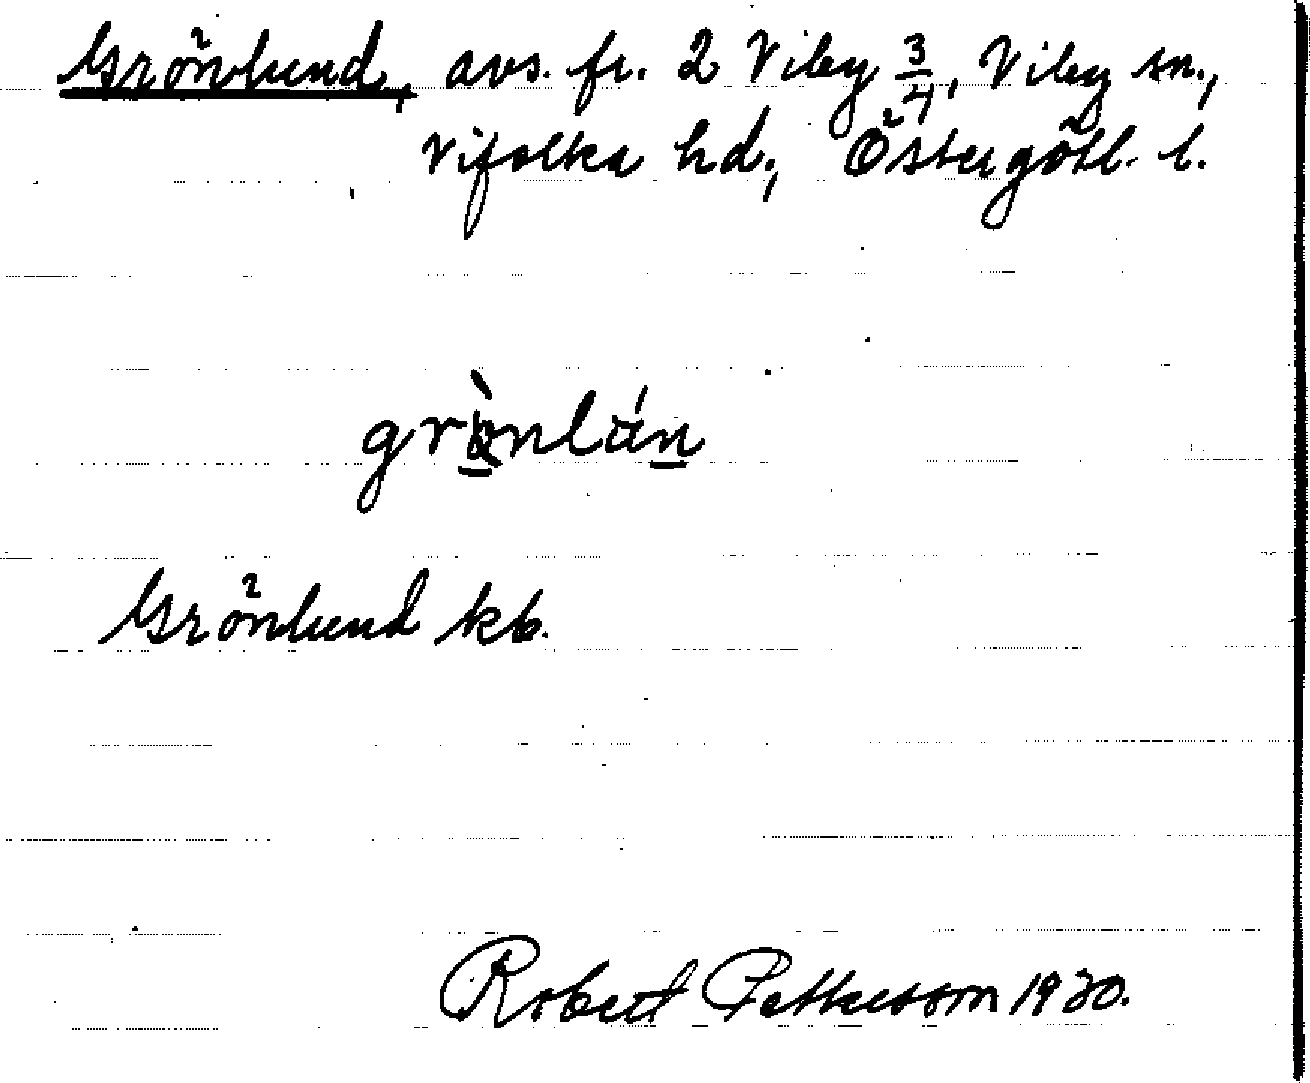 Grönlund, avs. fr. 2 Viby 3/4, Viby sn.,
Vifolka hd., Östergötl. l.
Grönlund kb.
Robert Pettersson 1930.